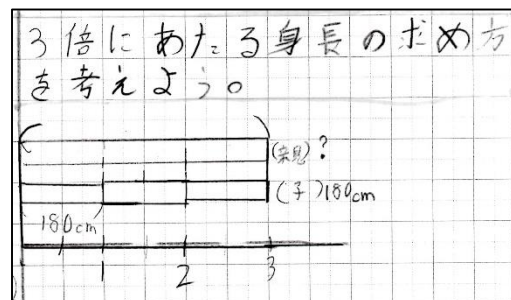 3倍にあたる身長の求め方
を考えよう。
(親)?
(子)180cm
180cm
1 2 3